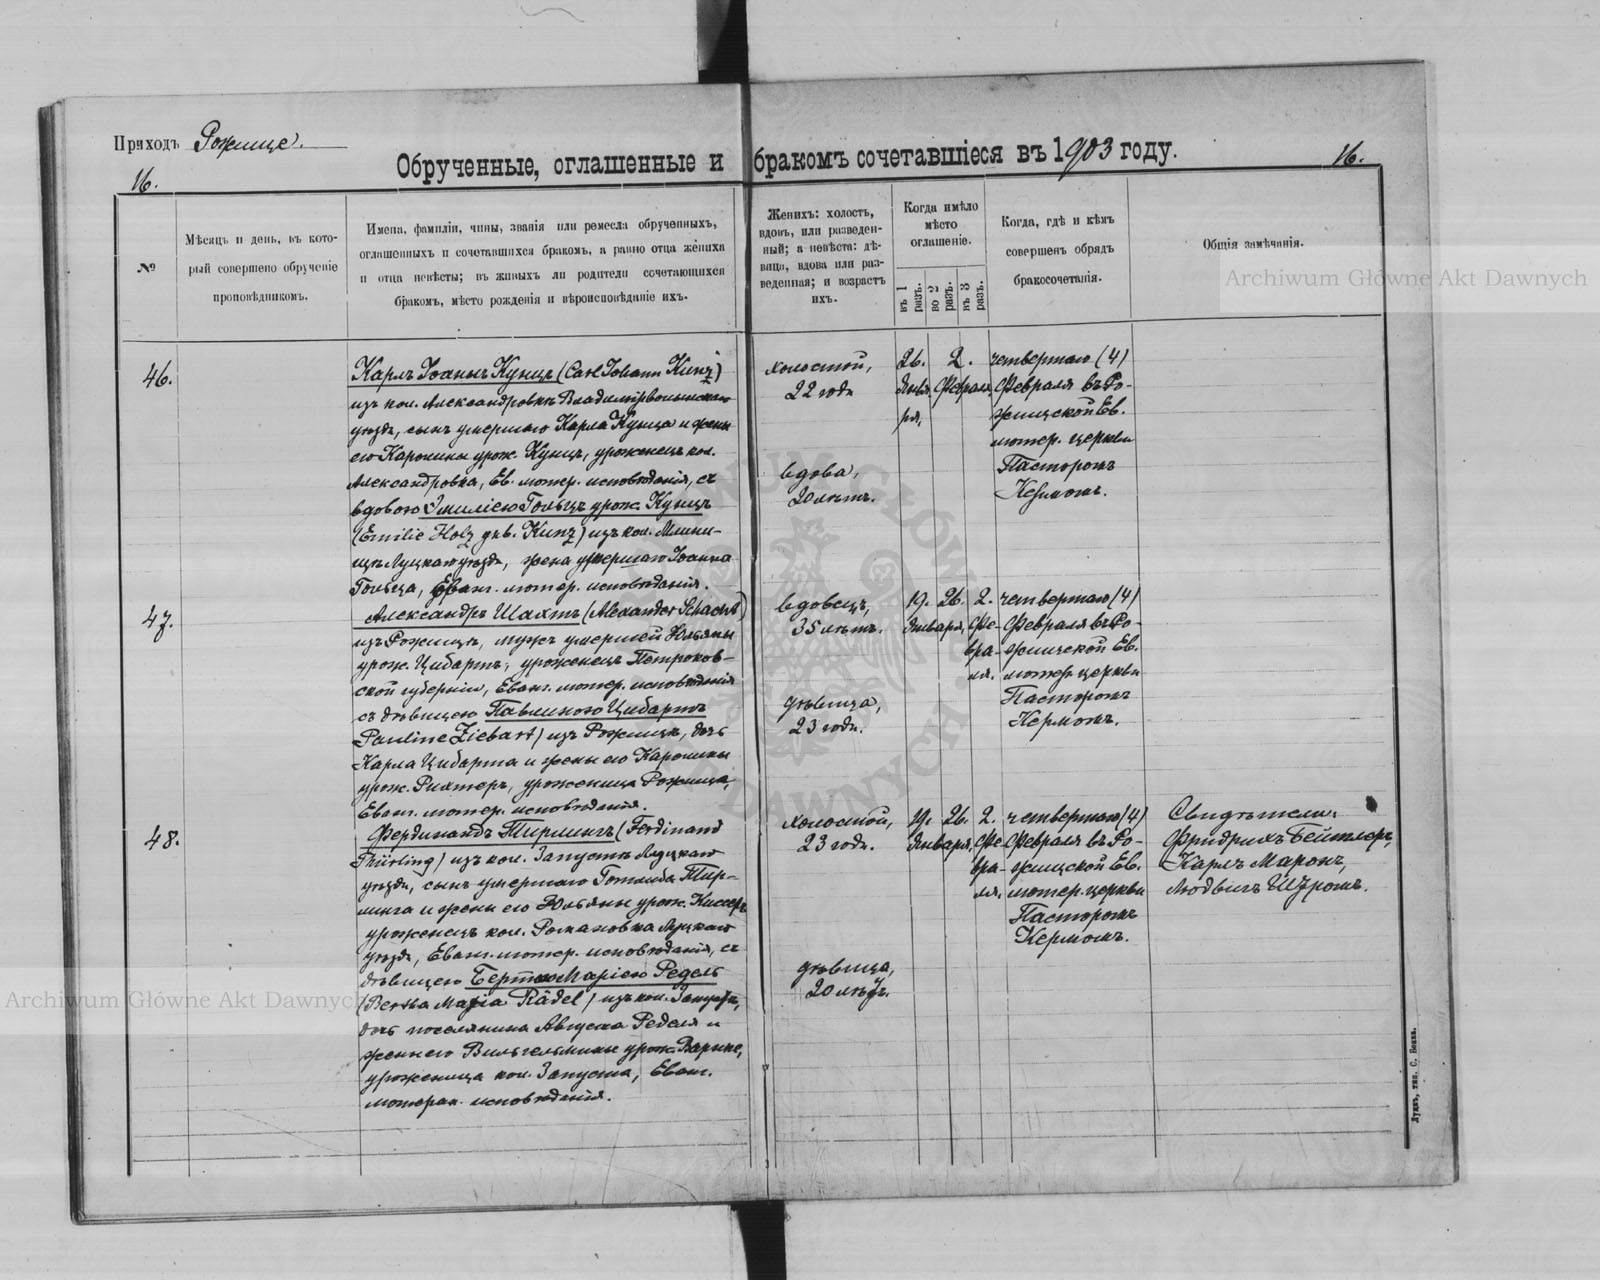 Приходъ Рожище.
Обрученные, оглашенные и бракомъ сочетавшіеся въ 1903 году.
16.
16.
№
Мѣсяцъ и день, въ кото-
рый совершено обрученіе
проповѣдникомъ.
Имена, фамиліи, чины, званія или ремесла обрученныхъ,
оглашенныхъ и сочетавшихся бракомъ, а равно отца жениха
и отца невѣсты; въ живыхъ ли родители сочетающихся
бракомъ, мѣсто рожденія и вѣроисповѣданіе ихъ.
Женихъ: холостъ,
вдовъ, или разведен-
ный; а невѣста: дѣ-
вица, вдова или раз-
веденная; и возрастъ
ихъ.
Когда имѣло
мѣсто
оглашеніе.
въ 1 разъ.
во 2 разъ.
въ 3 разъ.
Когда, гдѣ и кѣмъ
совершенъ обрядъ
бракосочетанія.
Общія замѣчанія.
Archiwum Główne Akt Dawnych
46.
Карлъ Іоаннъ Кунцъ (Carl Johann Kunz)
изъ кол. Александровки Владимірволынскаго
уѣзда, сынъ умершаго Карла Кунца и жены
его Каролины урож. Кунцъ, уроженецъ кол.
Александровка, Ев. лютер. исповѣданія, съ
вдовою Эмиліею Гольцъ урож. Кунцъ
(Emilie Holz ) изъ кол.
Луцкаго уѣзда, жена умершаго Іоанна
Гольца, Еванг. лютер. исповѣданія.
холостой,
22 года
вдова,
20 лѣтъ.
26.
Янва
ря,
2.
Февраля,
четвертаго (4)
Февраля въ Ро-
жищской Ев.
лютер. церкви
Пасторомъ
Кермомъ.
47.
Александръ Шахтъ (Alexander Schacht)
изъ Рожищъ, мужъ умершей Юльяны
урож. Цибартъ, уроженецъ Петроков-
ской губерніи, Еванг. лютер. исповѣданія
съ дѣвицею Павлиною Цибартъ
Pauline Ziebart) изъ Рожищъ, дочь
Карла Цибарта и жены его Каролины
урож. Рихтеръ, уроженица Рожища,
Еванг. лютер. исповѣданія.
вдовецъ,
35 лѣтъ.
дѣвица,
23 года.
19. 26.
Января,
2.
Фе-
вра-
ля.
четвертаго (4)
Февраля въ Ро-
жищской Ев.
лютер. церкви
Пасторомъ
Кермомъ.
48.
Фердинандъ Тирлингъ (Ferdinand
Thürling) изъ кол. Запустъ Луцкаго
уѣзда, сынъ умершаго Готлиба Тир-
линга и жены его Юльяны урож.
уроженецъ кол. Романовка Луцкаго
уѣзда, Еванг. лютер. исповѣданія, съ
дѣвицею Бертою Маріею Редель
(Bertha Maria Rädel) изъ кол.
дочь поселянина Августа Ределя и
жены его Вильгельмины урож.
уроженица кол. Запуста, Еванг.
лютеран. исповѣданія.
холостой,
23 года.
дѣвица,
20 лѣтъ.
19. 26.
Января,
2.
Фе-
вра-
ля.
четвертаго (4)
Февраля въ Ро-
жищской Ев.
лютер. церкви
Пасторомъ
Кермомъ.
Свидѣтели:
Фридрихъ Бейтлеръ,
Карлъ Маронъ,
Людвигъ
Archiwum Główne Akt Dawnych
Луцкъ, тип. С. Бокъ.